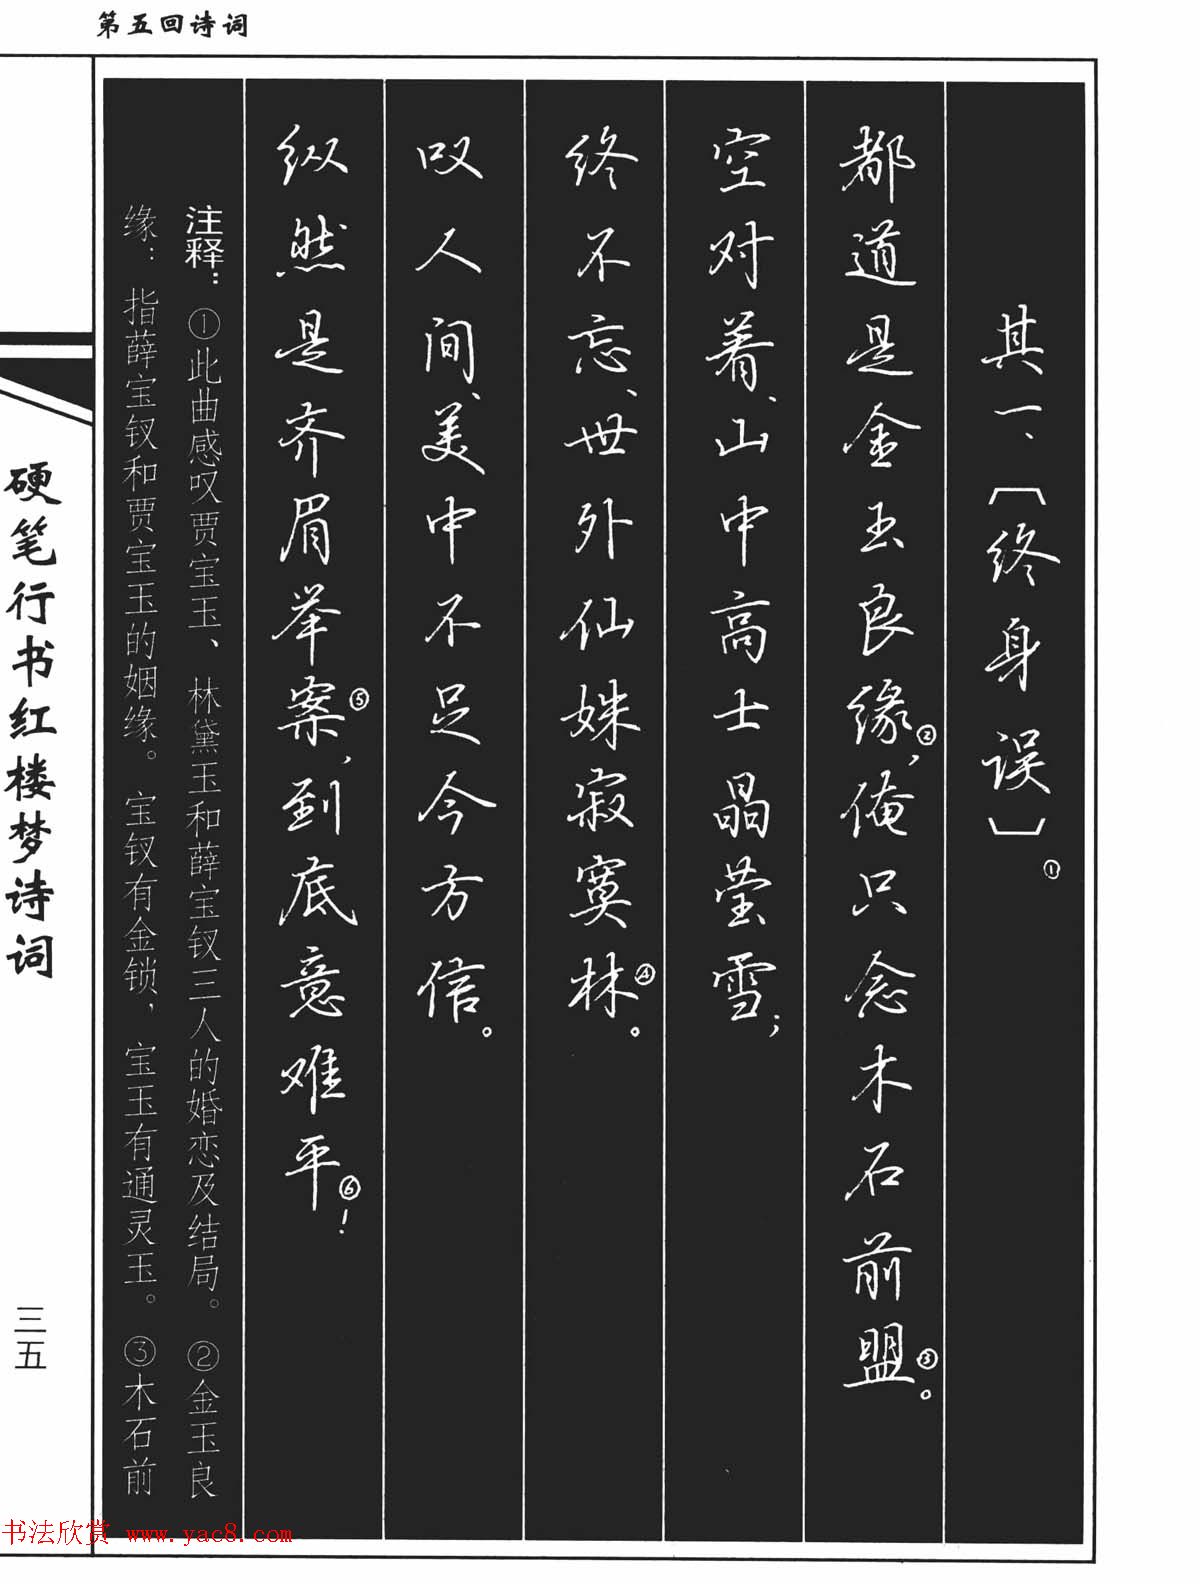 第五回诗词
其一、〔终身误〕①
都道是金玉良缘②，俺只念木石前盟③。
空对着、山中高士晶莹雪；
终不忘、世外仙姝寂寞林④。
叹人间、美中不足今方信。
纵然是齐眉举案⑤，到底意难平⑥！
注释：①此曲感叹贾宝玉、林黛玉和薛宝钗三人的婚恋及结局。②金玉良
缘：指薛宝钗和贾宝玉的姻缘。宝钗有金锁，宝玉有通灵玉。③木石前
硬笔行书红楼梦诗词
三五
书法欣赏 www.yac8.com